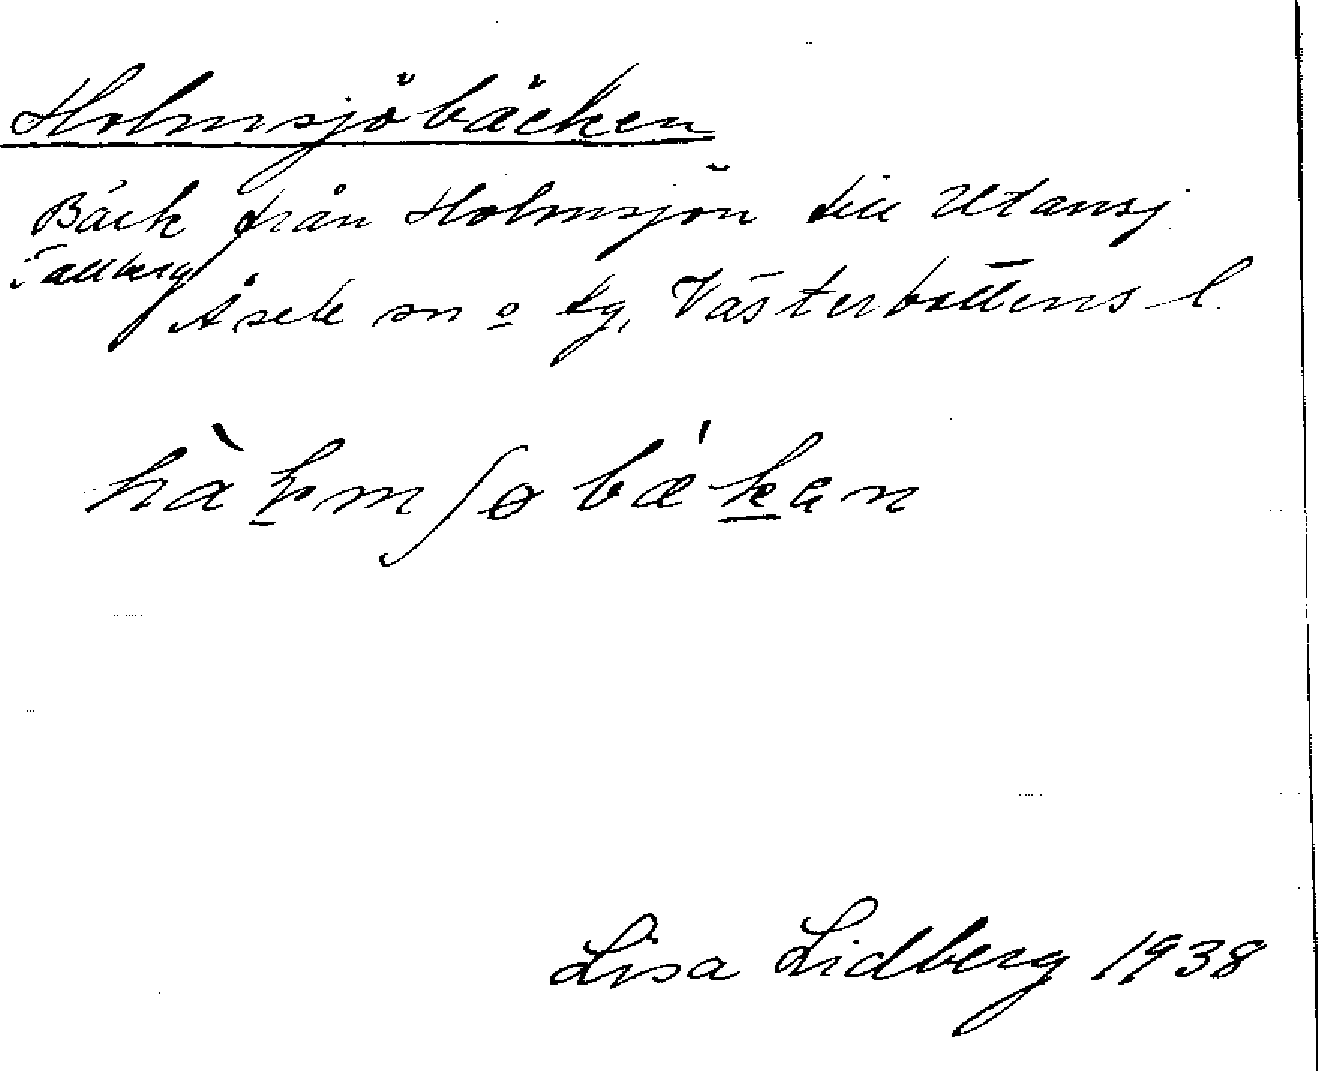 Holmsjöbäcken
Bäck från Holmsjön till Utansj
Tallberg
Åsele sn o tg, Västerbottens l.
Lisa Lidberg 1938